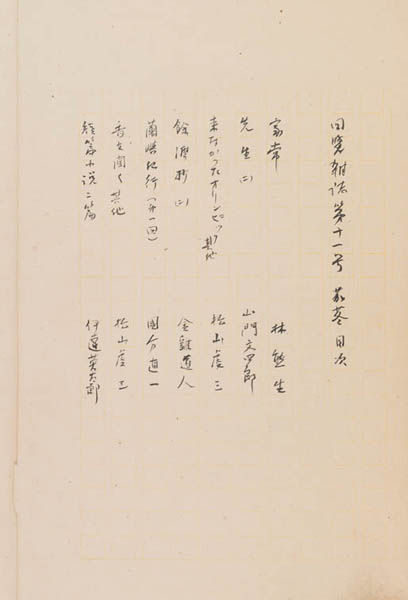 回覧雑誌 第十一号 目次
家常 林熊生
先生(二) 山門文四郎
来なかったオリンピック 其他 松山虔三
餘滴抄(二) 金鶏道人
蘭嶼紀行(第一回) 国分直一
香を聞く 其他 松山虔三
短篇小説二篇 伊達英太郎